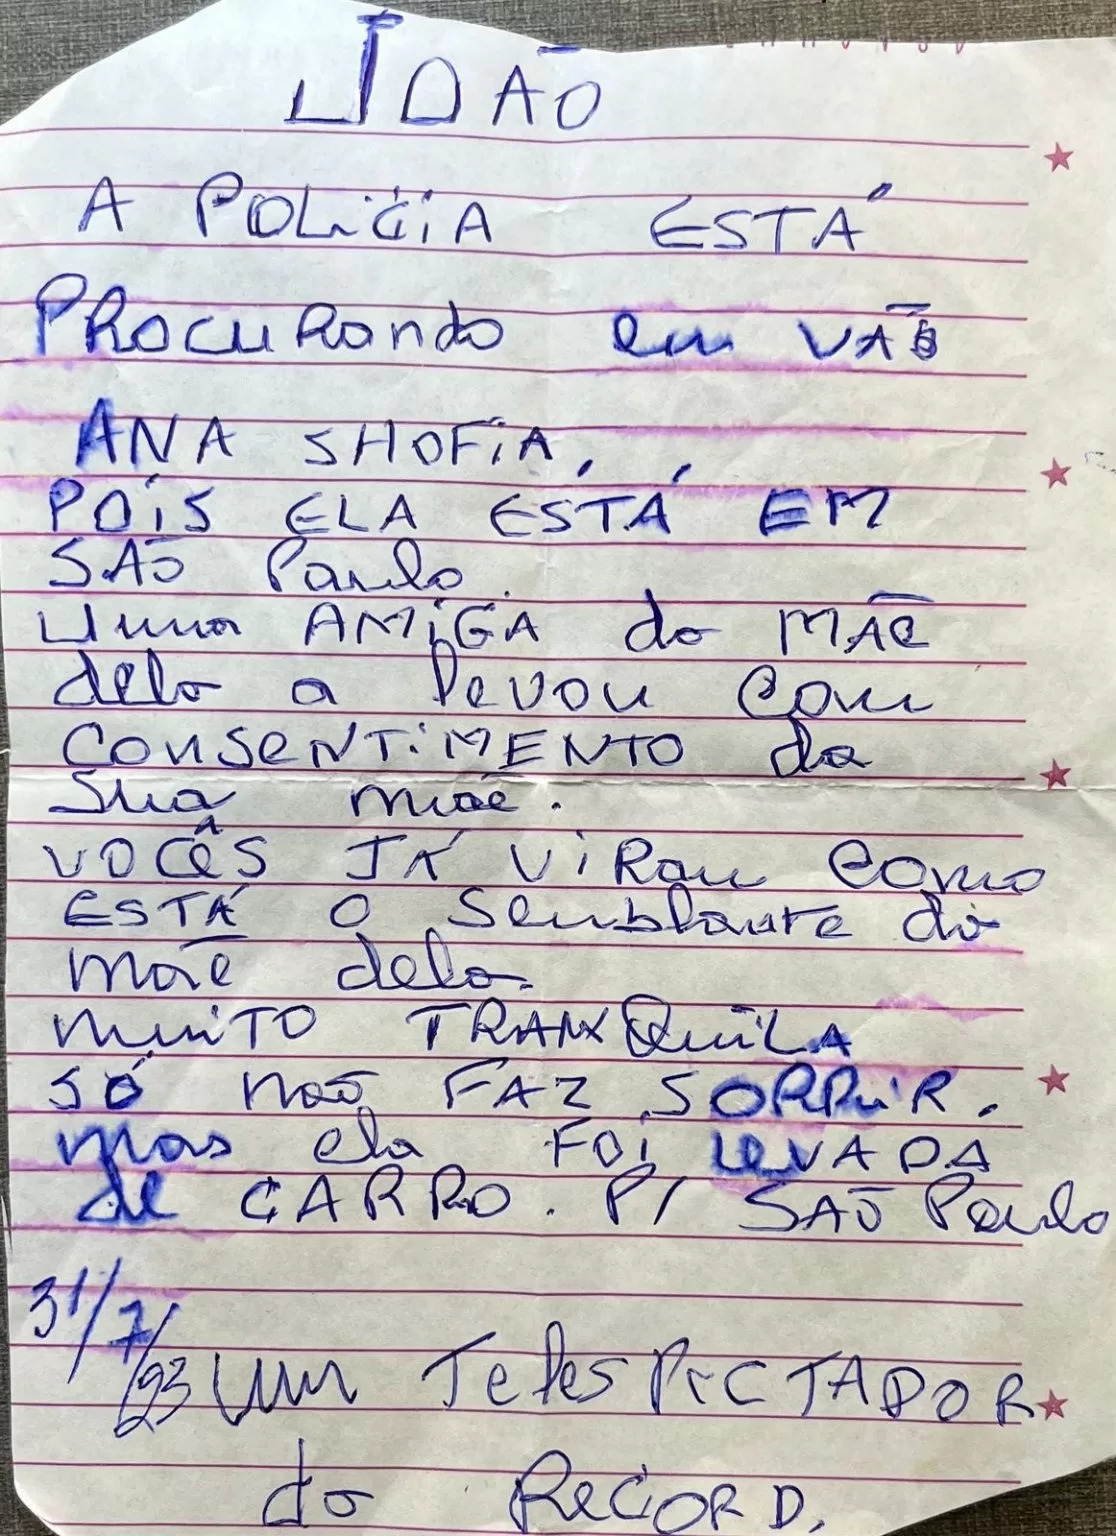 JOÃO
A POLICIA ESTÁ
PROCURANDO em VÃO
ANA SHOFIA,
POIS ELA ESTÁ EM
SÃO Paulo.
Uma AMIGA da MÃE
dela a levou com
CONSENTIMENTO da
Sua mãe.
VOCÊS JÁ VIRam como
ESTÁ O Semblante da
mãe dela.
muiTO TRANXQuiLA
SÓ não FAZ SORRIR.
mas ela FOI leVADA
de CARRO. P/ SÃO Paulo
31/7/23 Um TelesPECTADOR
da RECORD.